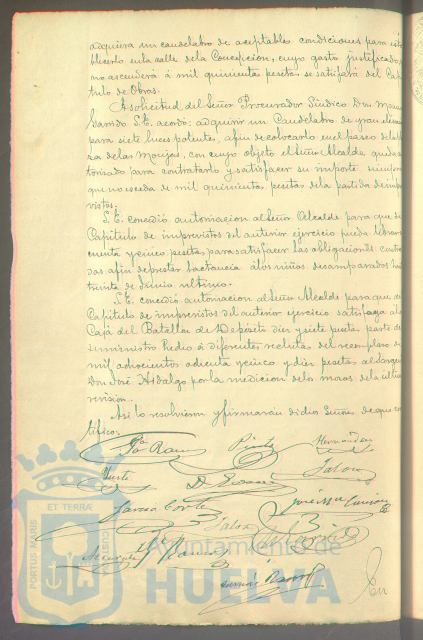 adquiera un candelabro de aceptables condiciones para esta
blecerlo en la calle de la Concepcion, cuyo gasto justificado, 
no ascenderá á mil quinientas pesetas se satisfará del Capí
tulo de Obras.
A solicitud del Señor Procurador Síndico Don Manuel
Garrido S.E. acordó: adquirir un Candelabro de gran
para siete luces potente, afin de colocarlo en el paseo de la Pla
za de las Monjas, con cuyo objeto el Señor Alcalde, queda au
torisado para contratarlo y satisfacer su importe siempre
que no exceda de mil quinientas pesetas de la partida de impre
vistos.
S.E. concedió autorizacion al Señor Alcalde para que del
Capitulo de imprevistos del anterior ejercicio pueda librar
cuenta y cinco pesetas, para satisfacer las obligaciones contrai
das afin de prestar lactancia á los niños desamparados hasta
treinta de Junio ultimo.
S.E. concedió autorizacion al Señor Alcalde para que del
Capitulo de imprevistos del anterior ejercicio satisfaga á la
Caja del Batallon de Depósito diez y siete pesetas parte de
suministro hecho á diferentes reclutas del reemplazo de
mil ochocientos ochenta y cinco y diez pesetas al Sargento
Don José Hidalgo por la medicion de los mozos de la ultima
revision.
Asi lo resolvieron y firmaran dichos Señores de que cer
tifico:
Hernandez
Garcia Cortes
Garrido
En
PORTUS MARIS ET TERRÆ CUSTODIA
Ayuntamiento de
HUELVA